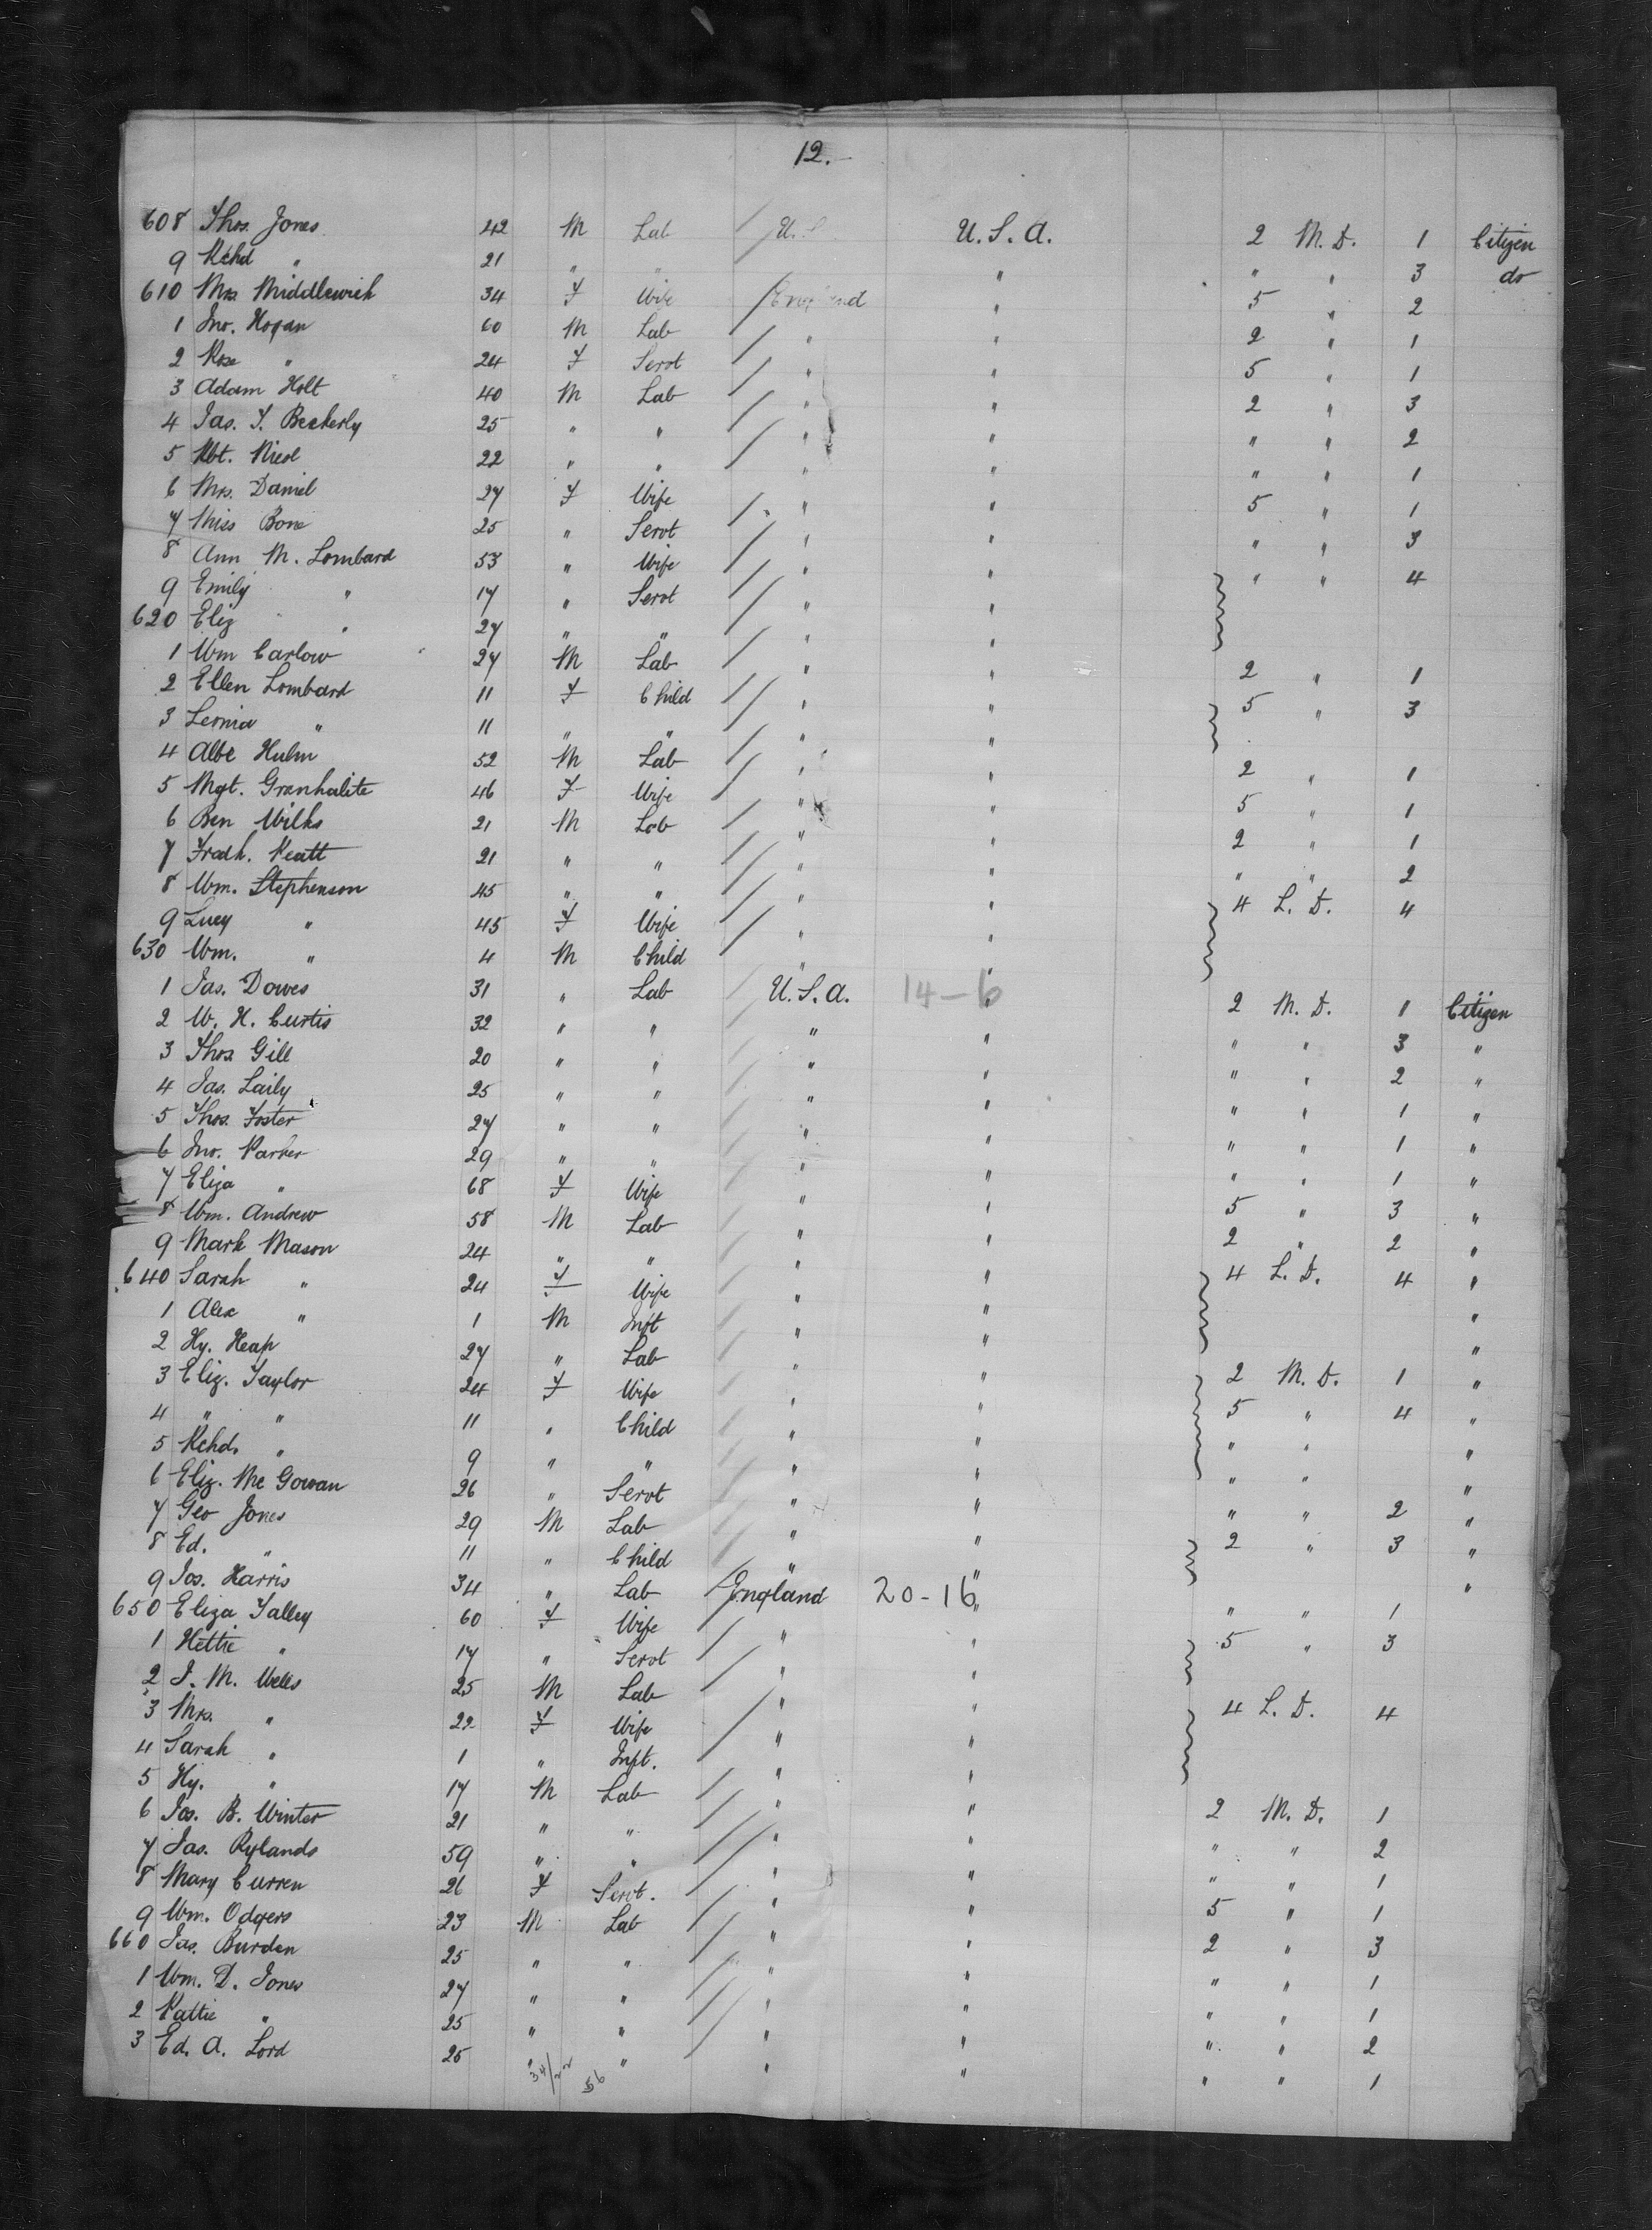 12.
608 Thos. Jones 42 M Lab U.S. U.S.A. 2 M.D. 1 Citizen
9 Rchd " 21 " " " " " 3 do
610 Mrs Middlewich 34 F Wife England " 5 " 2
1 Jno. Hogan 60 M Lab " " 2 " 1
2 Rose " 24 F Servt " " 5 " 1
3 Adam Holt 40 M Lab " " 2 " 3
4 Jas. T. Beckerly 25 " " " " " " 2
5 Rbt. 22 " " " " " " 1
6 Mrs. Daniel 27 F Wife " " 5 " 1
7 Miss Bone 25 " Servt " " " " 3
8 Ann M. Lombard 53 " Wife " " " " 4
9 Emily " 17 " Servt " "
620 Eliz " 27 " " " "
1 Wm Carlow 27 M Lab " " 2 " 1
2 Ellen Lombard 11 F Child " " 5 " 3
3 Leonia " 11 " " " "
4 Albt Hulm 52 M Lab " " 2 " 1
5 Mgt. Granhalite 46 F Wife " " 5 " 1
6 Ben Wilks 21 M Lab " " 2 " 1
7 Fredk. Peatt 21 " " " " " " 2
8 Wm. Stephenson 45 " " " " 4 L.D. 4
9 Lucy " 45 F Wife " "
630 Wm. " 4 M Child " "
1 Jas. Dowes 31 " Lab U.S.A. 14-6 " 2 M.D. 1 Citizen
2 W. H. Curtis 32 " " " " " " 3 "
3 Thos Gill 20 " " " " " " 2 "
4 Jas. Laily 25 " " " " " " 1 "
5 Thos. Foster 27 " " " " " " 1 "
6 Jno. Parker 29 " " " " " " 1 "
7 Eliza " 68 F Wife " " 5 " 3 "
8 Wm. Andrew 58 M Lab " " 2 " 2 "
9 Mark Mason 24 " " " " 4 L.D. 4 "
640 Sarah " 24 F Wife " " "
1 Alex " 1 M Inft " " "
2 Hy. Heap 27 " Lab " " 2 M.D. 1 "
3 Eliz. Taylor 24 F Wife " " 5 " 4 "
4 " " 11 " Child " " " " "
5 Rchd. " 9 " " " " " " "
6 Eliz. Mc Gowan 26 " Servt " " " " 2 "
7 Geo Jones 29 M Lab " " 2 " 3 "
8 Ed. " 11 " Child " " "
9 Jos. Harris 34 " Lab England 20-16 " " " 1
650 Eliza Talley 60 F Wife " " 5 " 3
1 Hettie " 17 " Servt " "
2 J. M. Wells 25 M Lab " " 4 L.D. 4
3 Mrs. " 22 F Wife " "
4 Sarah " 1 " Inft. " "
5 Hy. " 17 M Lab " " 2 M.D. 1
6 Jos. B. Winter 21 " " " " " " 2
7 Jas. Rylands 59 " " " " " " 1
8 Mary Curren 26 F Servt. " " 5 " 1
9 Wm. Odgers 23 M Lab " " 2 " 3
660 Jas. Burden 25 " " " " " " 1
1 Wm. D. Jones 27 " " " " " " 1
2 Pattie " 25 " " " " " " 2
3 Ed. A. Lord 25 " " " " " " 1
34/22 56